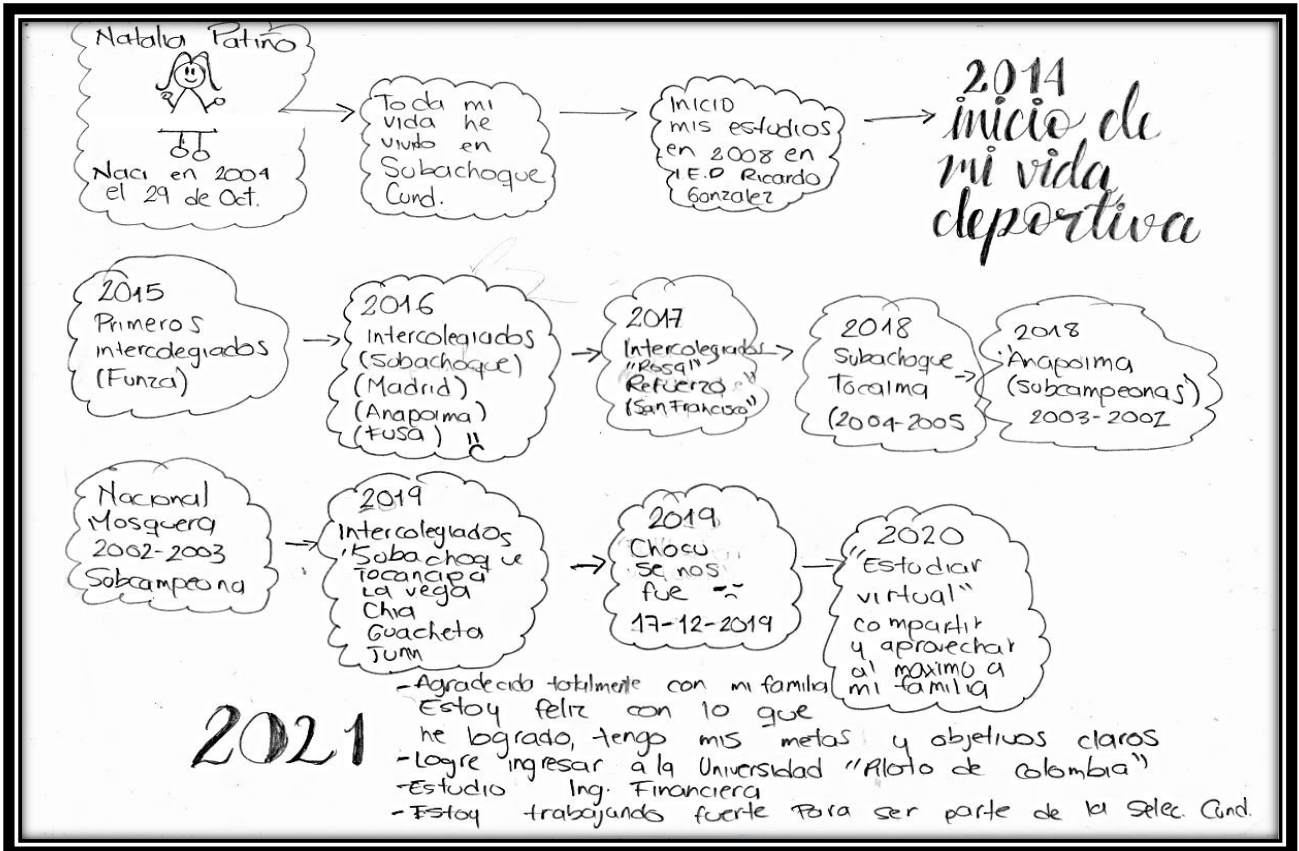 Natalia Patiño
Naci en 2004
el 29 de Oct.
Toda mi
vida he
vivido en
Subachoque
Cund.
Inicio
mis estudios
en 2008 en
I.E.D Ricardo
Gonzalez
2014
inicio de
mi vida
deportiva
2015
Primeros
intercolegiados
(Funza)
2016
Intercolegiados
(Subachoque)
(Madrid)
(Anapoima)
(Fusa)
2017
Intercolegiados
"Rosa"
Refuerzo
(San Francisco"
2018
Subachoque
Tocaima
(2004-2005
2018
Anapoima
(subcampeonas)
2003-2002
Nacional
Mosquera
2002-2003
Subcampeona
2019
Intercolegiados
"Subachoque
Tocancipa
La vega
Chia
Guacheta
Junin
2019
Chocu
se nos
fue
17-12-2019
2020
"Estudiar
virtual"
compartir
y aprovechar
al maximo a
mi familia
2021
-Agradecida totalmente con mi familia
Estoy feliz con lo que
he logrado, tengo mis metas y objetivos claros
-Logre ingresar a la Universidad "Piloto de colombia"
-Estudio Ing. Financiera
-Estoy trabajando fuerte Para ser parte de la Selec. Cund.